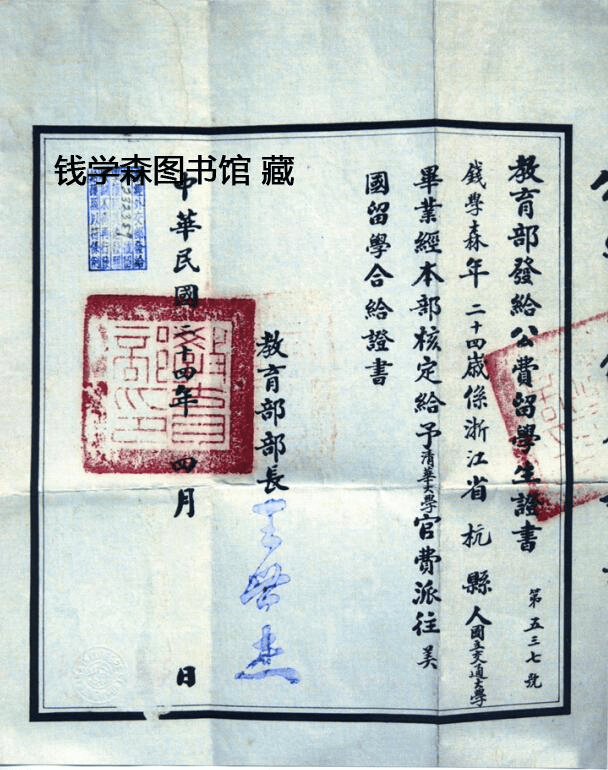 钱学森图书馆 藏
教育部發給公費留學生證書
第五三七號
錢學森年二十四歲係浙江省杭縣人國立交通大學
畢業經本部核定給予清華大學官費派往美
國留學合給證書
教育部部長
王世杰
中華民國二十四年四月 日